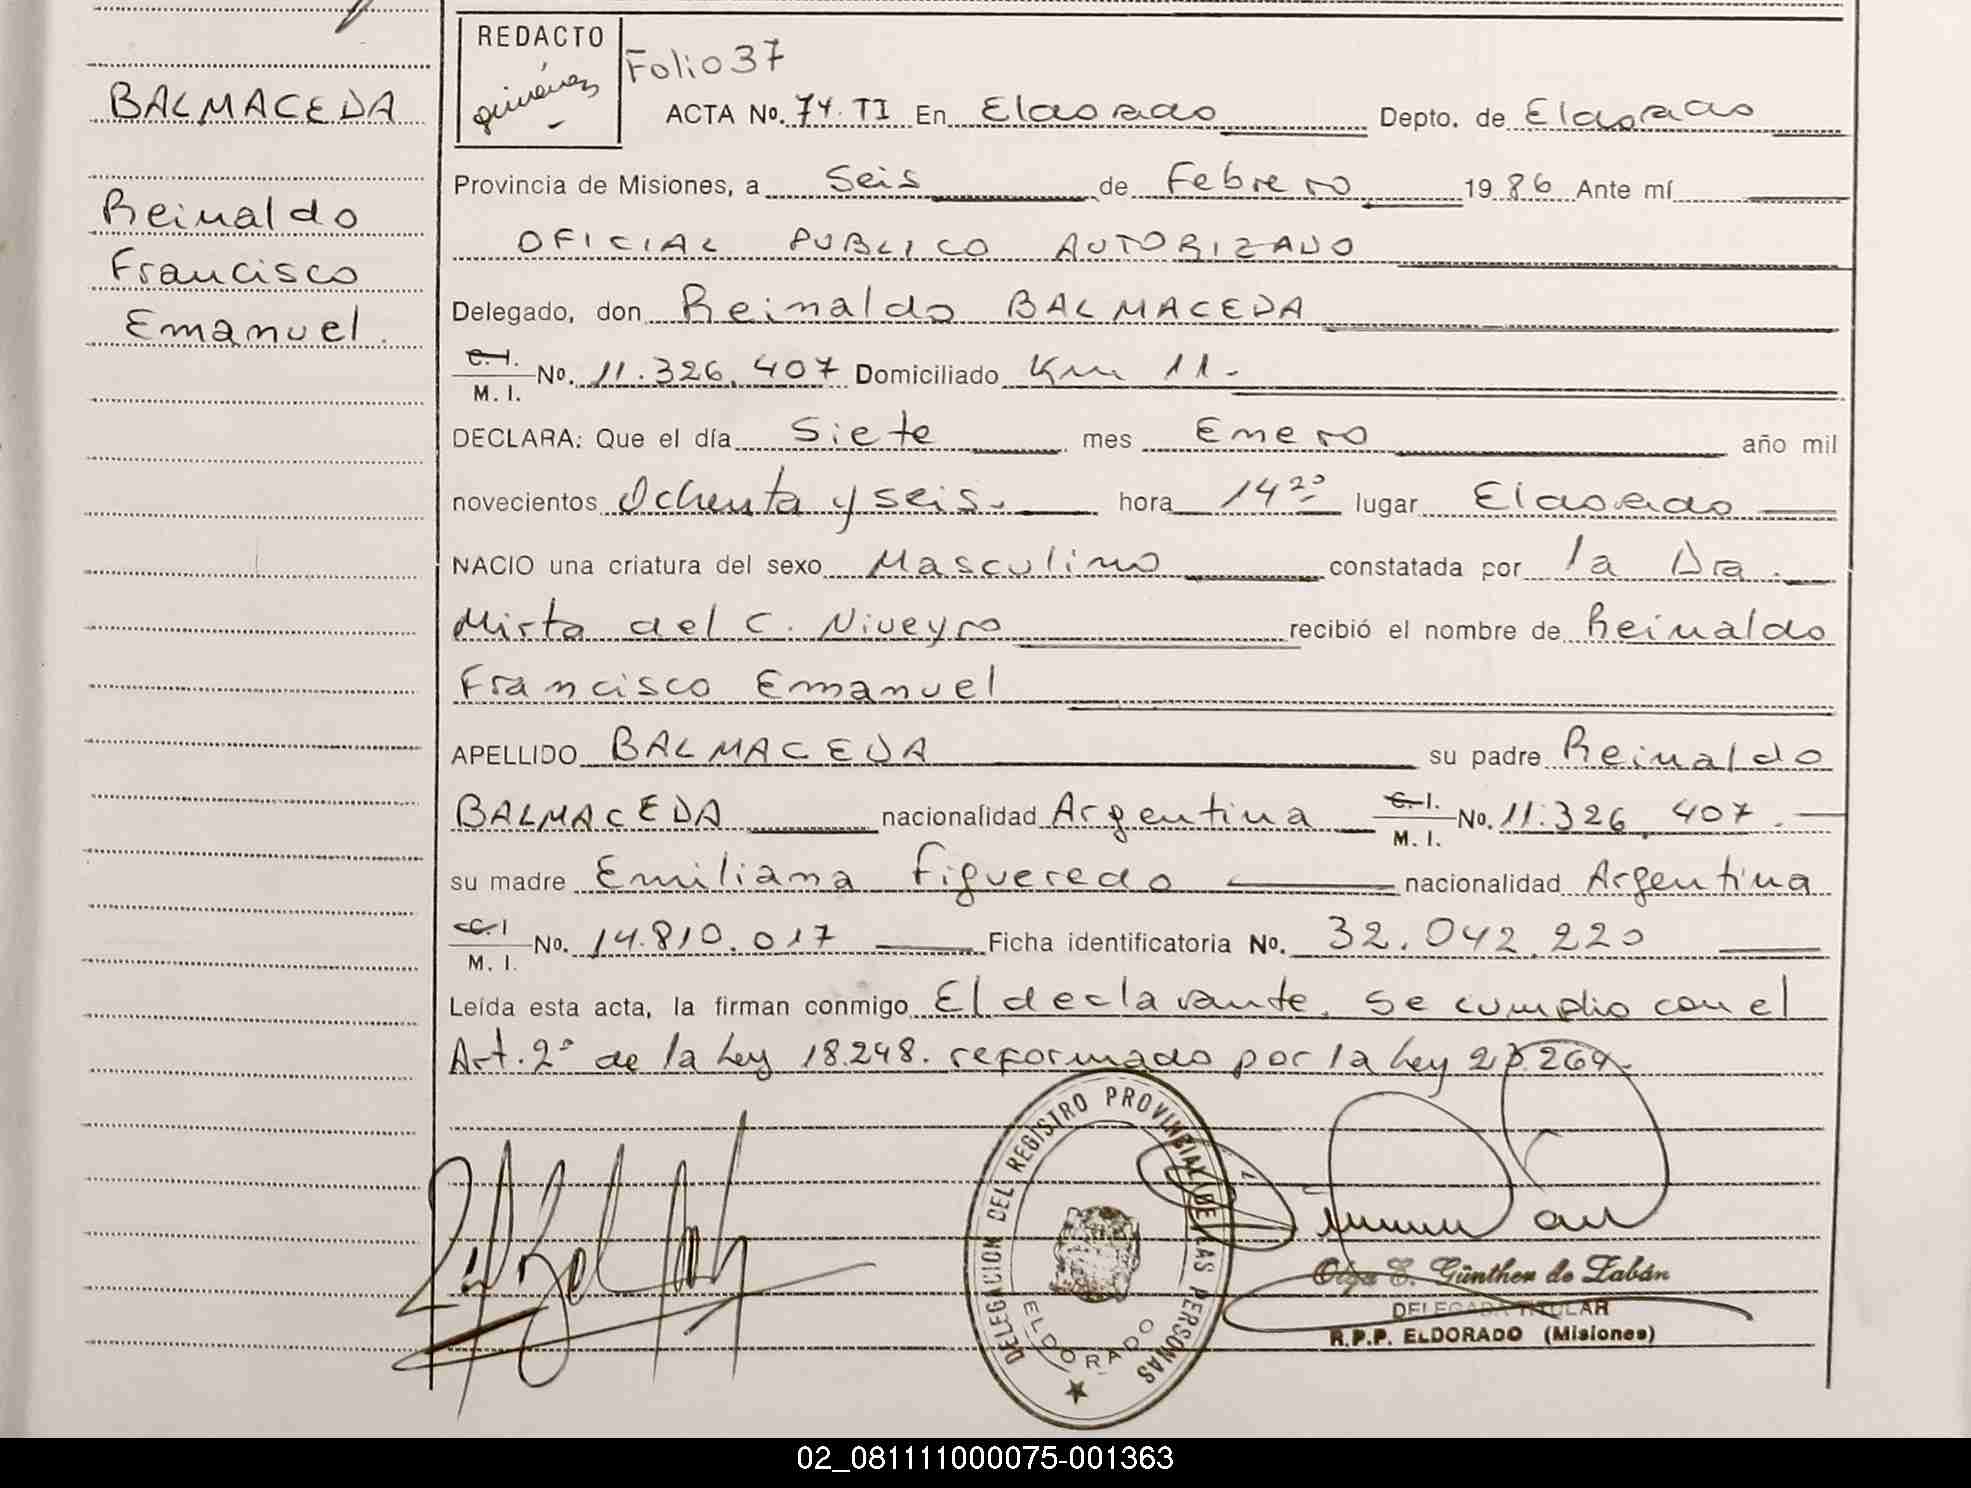 BALMACEDA
Reinaldo
Francisco
Emanuel.
REDACTO
Folio 37
ACTA No. 74. TI En Eldorado Depto. de Eldorado
Provincia de Misiones, a Seis de Febrero 1986 Ante mí
OFICIAL PUBLICO AUTORIZADO
Delegado, don Reinaldo BALMACEDA
C. I. M. I. No. 11.326.407 Domiciliado Km 11.
DECLARA: Que el día Siete mes Enero año mil
novecientos Ochenta y seis. hora 14 20 lugar Eldorado
NACIO una criatura del sexo Masculino constatada por la Dra.
Mirta del C. Niveyro recibió el nombre de Reinaldo
Francisco Emanuel
APELLIDO BALMACEDA su padre Reinaldo
BALMACEDA nacionalidad Argentina C. I. M. I. No. 11.326.407.
su madre Emiliana Figueredo nacionalidad Argentina
C. I M. I. No. 14.810.017 Ficha identificatoria No. 32.042.220
Leída esta acta, la firman conmigo El declarante. Se cumplio con el
Art. 2º de la Ley 18.248. reformado por la Ley 23.264.
DELEGACION DEL REGISTRO PROVINCIAL DE LAS PERSONAS
ELDORADO
Olga E. Günther de Zabán
DELEGADA TITULAR
R.P.P. ELDORADO (Misiones)
02_081111000075-001363